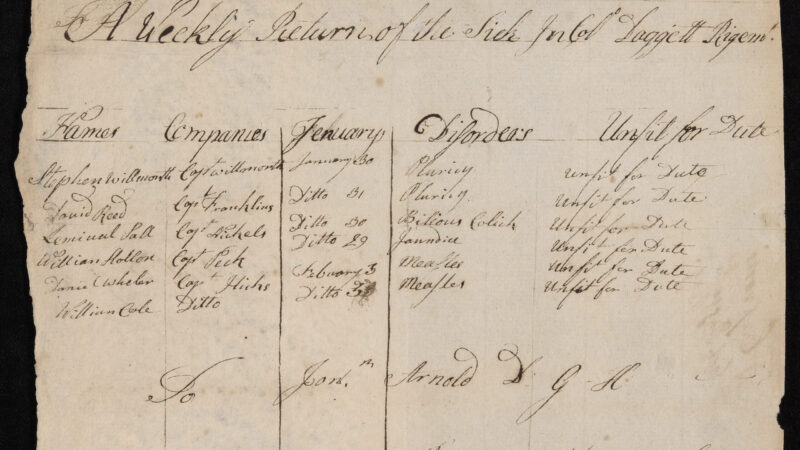 A Weekly Return of the Sick In Col.º Daggett Rigem.t
Names Companies Jenuary Disorders Unfit for Dute
Stephen Willmorth Cap.t Willmorth January 30 Pluricy unfit for Dute
David Reed Cap.t Franklins Ditto 31 Pluricy Unfit for Dute
Lemiual Sall Cap.t Nickels Ditto 30 Billous Colick Unfit for Dute
William Hollon Cap.t Peck Ditto 29 Jaundice Unfit for Dute
Daniel Wheler Cap.t Hicks Febuary 3 Measles Unfit for Dute
William Cole Ditto Ditto 3 Measles Unfit for Dute
To Jon.n Arnold D. G H